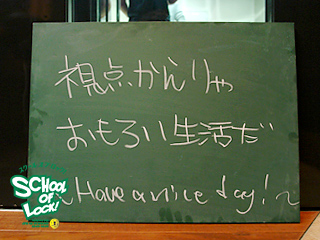 視点かんりゃ
おもろい生活だ
~Have a nice day!~
SCHOOL
OF
LOCK!